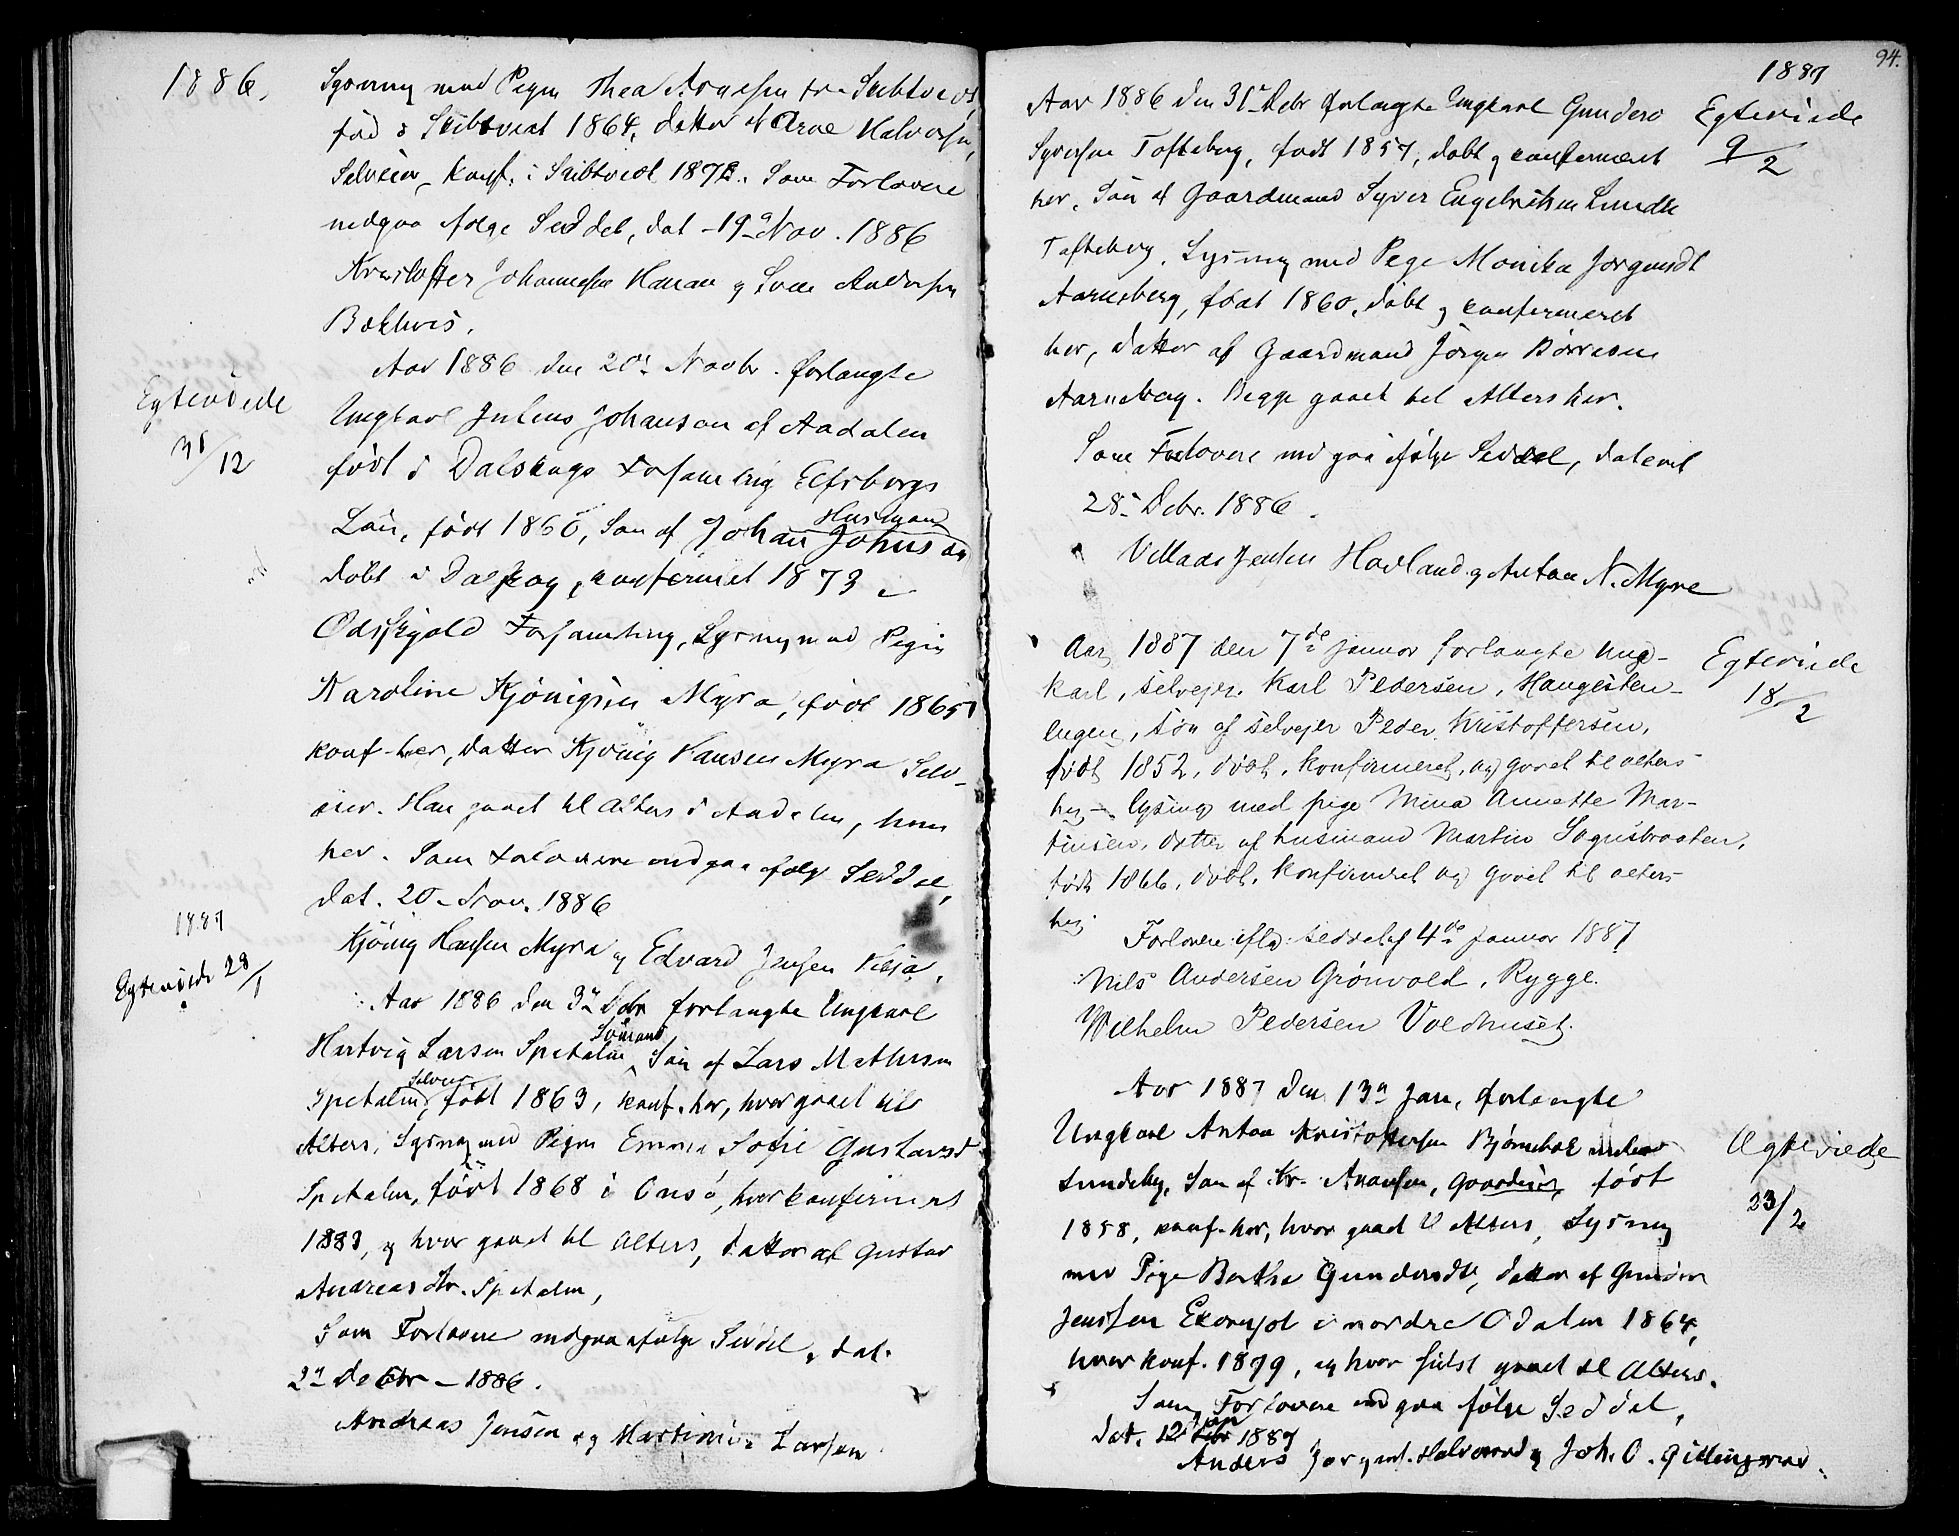 1886.
Lysning med Pigen Thea Arnesen fra Skibtvedt
fød i Skibtvedt 1864, datter af Arne Halvorsen,
Selveier, konf. i Skibtvedt 1878. Som Forlovere
indgaa følge Seddel, dat. 19de Nov. 1886
Kristoffer Johannesen Hauan og Andersen
Aar 1886 den 20de Novbr. forlangte
Egteviede
31/12
Ungkarl Julius Johanson af Aadalen
født i Dalskogs Forsamling Elfsborgs
Husmand
Län, født 1860, Søn af Johan Johnson
døbt i Dalskog, konfirmeret 1873 i
Ödskjöld Forsamling, Lysning med Pigen
Karoline Kjönigsen Myra, født 1865
konf. her, datter Kjönig Hansen Myra Selv-
eier. Han gaaet til Alters i Aadalen, hun
her. Som Forlovere indgaa følge Seddel,
dat. 20de Nov. 1886
Kjönig Hansen Myra og Edvard Jensen
1887
Egteviede 28/1
Aar 1886 den 3de Debr forlangte Ungkarl
Sømand
Hartvig Larsen Spetalen, Søn af Lars Mathisen
Selveier
Spetalen, født 1863, konf. her, hvor gaaet til
Alters, Lysning med Pigen Emma Sofie Gustavsd.
Spetalen, født 1868 i Onsø, hvor konfirmeret
1883, og hvor gaaet til Alters, datter af Gustav
Andreas Spetalen,
Som Forlovere indgaa følge Seddel, dat.
2den Decbr. 1886.
Andreas Jensen og Larsen
94.
1887
Aar 1886 den 31te Debr forlangte Ungkarl Gunder
Egteviede
9/2
Syversen Tofteberg, født 1857, døbt og confirmeret
her, Søn af Gaardmand Syver Engebrethsen Lunde
Tofteberg. Lysning med Pige Monika Jørgensdt
Aarnesberg, født 1860, døbt og confirmeret
her, datter af Gaardmand Jørgen Børresen
Aarneberg. Begge gaaet til Alters her.
Som Forlovere indgaa ifølge Seddel, dateret
28de Debr. 1886.
Villads Jensen Havland og Anton N. Myre
Aar 1887 den 7de januar forlangte ung-
Egteviede
18/2
karl, selvejer Karl Pedersen, Haugesten-
engen, søn af selvejer Peder Kristoffersen,
født 1852, døbt, konfirmeret, og gaaet til alters
her – lysning med pige Mina Annette Mar-
tinsen, datter af husmand Martin Sognsbraaten,
født 1866, døbt, konfirmeret og gaaet til alters
her.
Forlovere ifløg seddel af 4de januar 1887
Nils Andersen Grönvold, Rygge.
Wilhelm Pedersen Voldhuset.
Aar 1887 den 13de Jan. forlangte
Ungkarl Anton Kristoffersen Bjørnebæk under
Ægteviede
Sundeby, Søn af Kr. Anonsen, Gaardeier, født
23/2
1858, konf. her, hvor gaaet til Alters, Lysning
med Pige Berthe Gundersdt, datter af Gunder
Jensen i nordre Odalen 1864,
hvor konf. 1879, og hvor sidst gaaet til Alters.
Som Forlovere indgaa følge Seddel,
dat. 12 Jan 1887
Anders Jørgens. Halvorsrød og Joh. O. Gillingsrød.